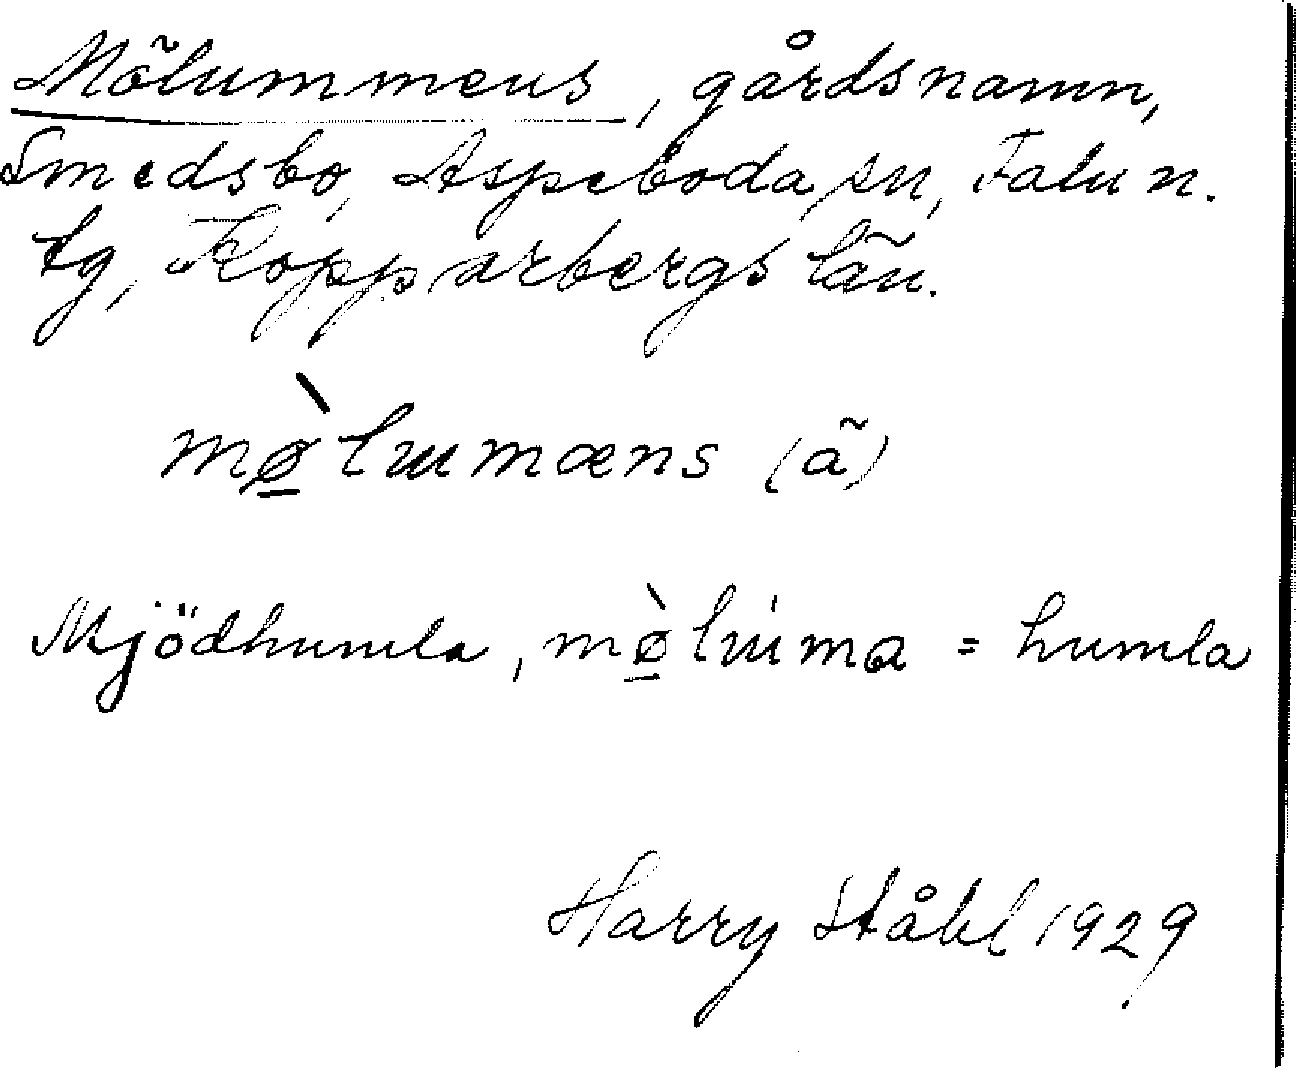 Mõlummens, gårdsnamn,
Smedsbo, Aspeboda sn, Falu n.
tg, Kopparbergs lãn.
mø̲̀lɯmæns (ã)
Mjödhumla, mø̲̀lɯma = humla
Harry Ståhl 1929